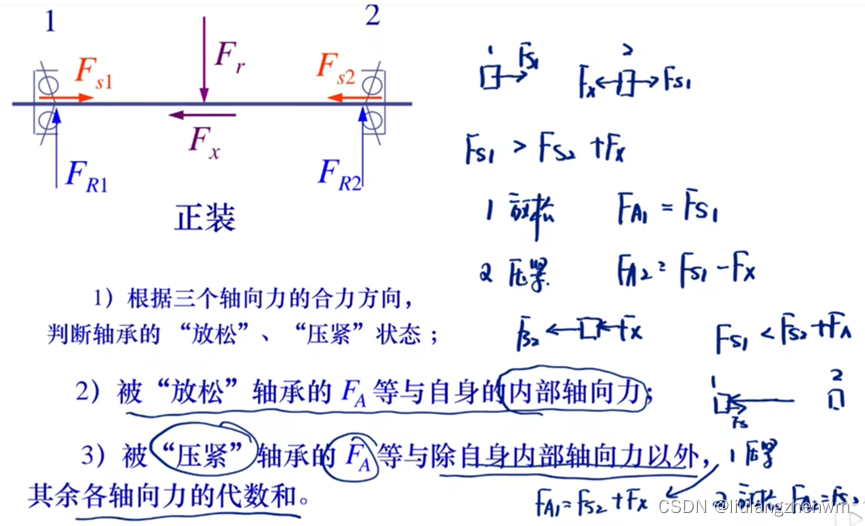 1
2
F_{s1}
F_r
F_{s2}
F_x
F_{R1}
F_{R2}
正装
1) 根据三个轴向力的合力方向，
判断轴承的 “放松”、“压紧” 状态；
2) 被 “放松” 轴承的 F_A 等与自身的内部轴向力；
3) 被 “压紧” 轴承的 F_A 等与除自身内部轴向力以外，
其余各轴向力的代数和。
1
F_{s1}
2
F_x
F_{s1}
F_{s1} > F_{s2} + F_x
1 放松 F_{A1} = F_{s1}
2 压紧 F_{A2} = F_{s1} - F_x
F_{s2}
F_x
F_{s1} < F_{s2} + F_A
1
2
F_s
1 压紧
F_{A1} = F_{s2} + F_x
2 放松
CSDN @liulangzhenwm